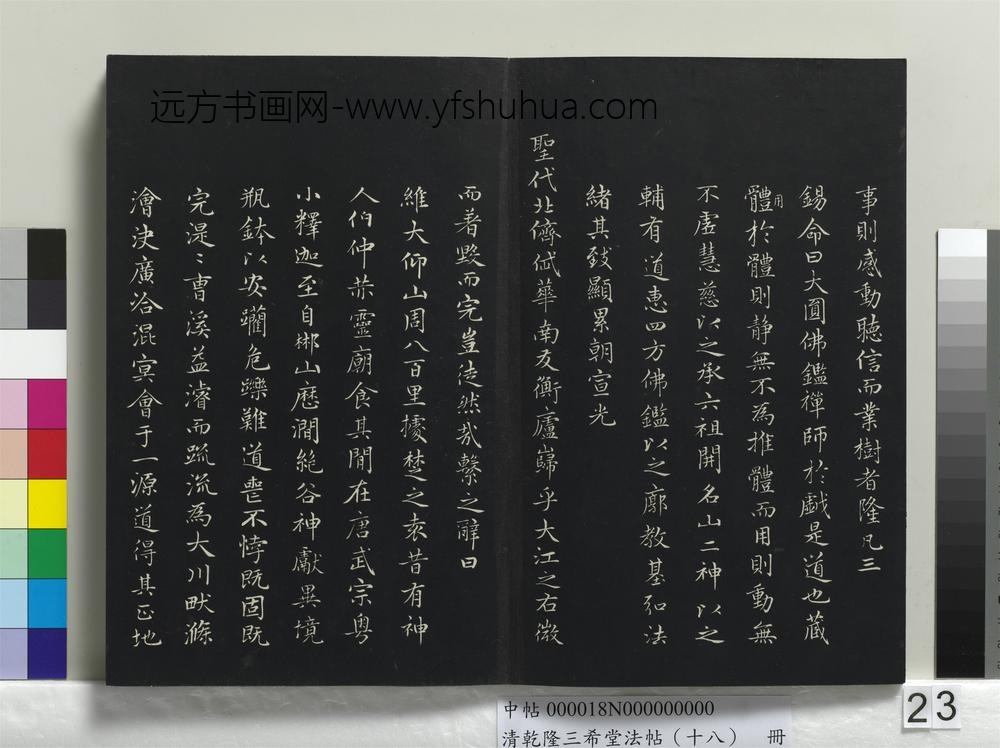 远方书画网-www.yfshuhua.com
事則感動聽信而業樹者隆凡三
錫命曰大圓佛鑑禪師於戲是道也蔵
體用於體則静無不為推體而用則動無
不虗慧慈以之承六祖開名山二神以之
輔有道惠四方佛鑑以之廓教基弘法
緒其致顯累朝宣光
聖代北儕岱華南友衡廬巋乎大江之右微
而著毀而完豈徒然哉繫之辭曰
維大仰山周八百里據楚之袁昔有神
人伯仲恭靈廟食其間在唐武宗粤
小釋迦至自郴山歷澗絶谷神獻異境
瓶鉢以安躪危轢難道喪不悖既固既
完混混曹溪益濬而疏流為大川畎滌
澮決廣洽混冥會于一源道得其正地
中帖 000018N000000000
清乾隆三希堂法帖（十八） 冊
23